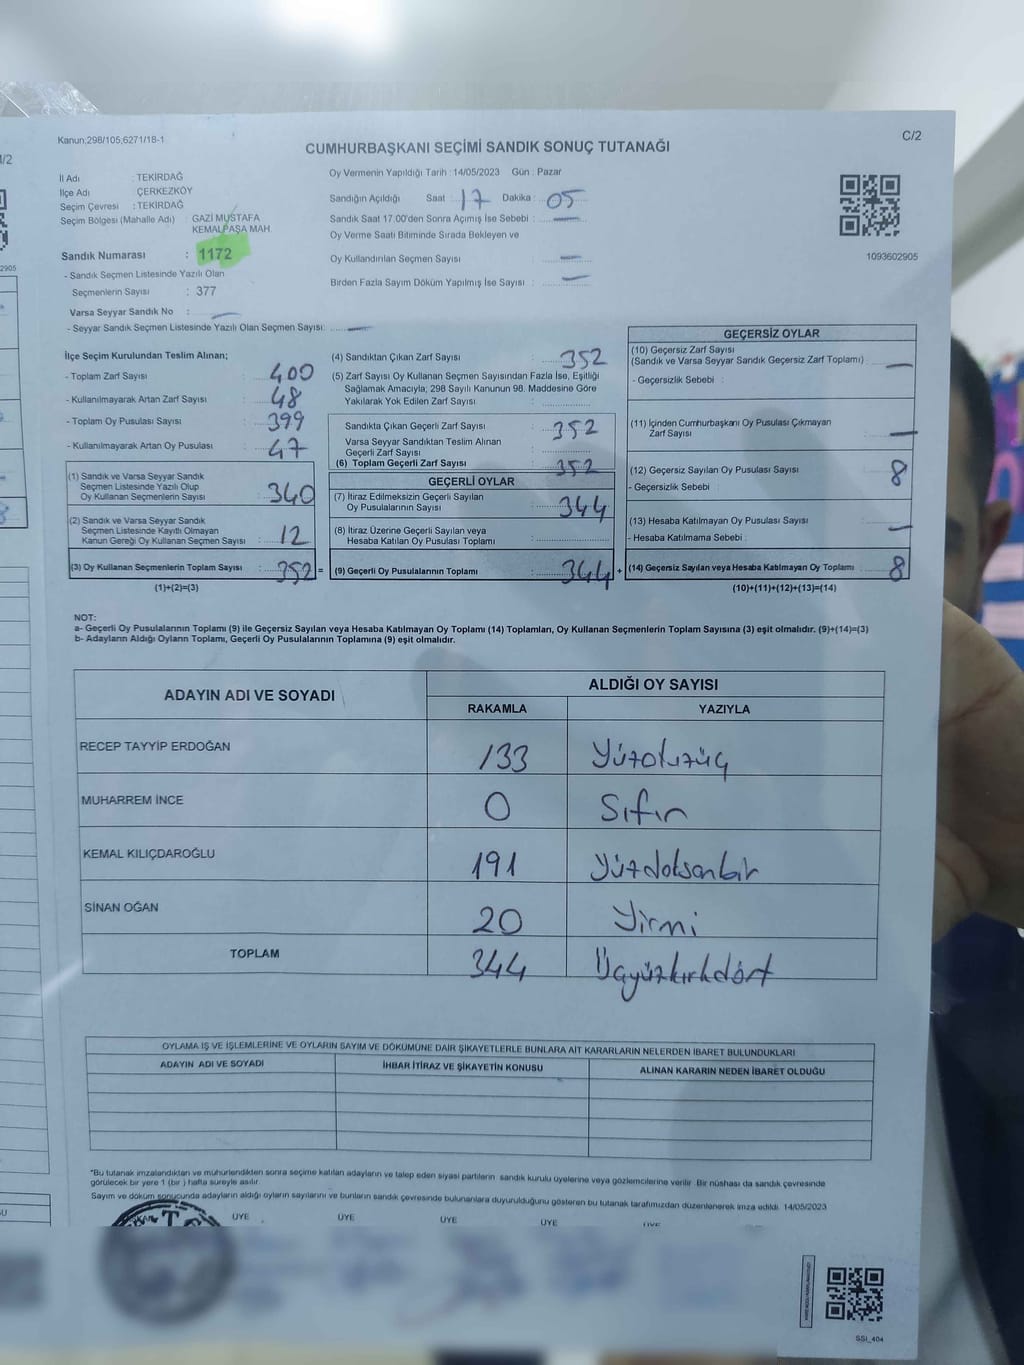 Kanun;298/105;6271/18-1
C/2
CUMHURBAŞKANI SEÇİMİ SANDIK SONUÇ TUTANAĞI
İl Adı : TEKİRDAĞ
İlçe Adı : ÇERKEZKÖY
Seçim Çevresi : TEKİRDAĞ
Seçim Bölgesi (Mahalle Adı) : GAZİ MUSTAFA
KEMALPAŞA MAH.
Sandık Numarası : 1172
- Sandık Seçmen Listesinde Yazılı Olan
Seçmenlerin Sayısı : 377
Varsa Seyyar Sandık No : —
- Seyyar Sandık Seçmen Listesinde Yazılı Olan Seçmen Sayısı: —
Oy Vermenin Yapıldığı Tarih : 14/05/2023 Gün : Pazar
Sandığın Açıldığı Saat : 17 Dakika : 05
Sandık Saat 17.00'den Sonra Açımış İse Sebebi : —
Oy Verme Saati Bitiminde Sırada Bekleyen ve
Oy Kullandırılan Seçmen Sayısı : —
Birden Fazla Sayım Döküm Yapılmış İse Sayısı : —
1093602905
İlçe Seçim Kurulundan Teslim Alınan;
- Toplam Zarf Sayısı : 400
- Kullanılmayarak Artan Zarf Sayısı : 48
- Toplam Oy Pusulası Sayısı : 399
- Kullanılmayarak Artan Oy Pusulası : 47
(1) Sandık ve Varsa Seyyar Sandık
Seçmen Listesinde Yazılı Olup
Oy Kullanan Seçmenlerin Sayısı : 340
(2) Sandık ve Varsa Seyyar Sandık
Seçmen Listesinde Kayıtlı Olmayan
Kanun Gereği Oy Kullanan Seçmen Sayısı : 12
(3) Oy Kullanan Seçmenlerin Toplam Sayısı : 352 =
(1)+(2)=(3)
(4) Sandıktan Çıkan Zarf Sayısı : 352
(5) Zarf Sayısı Oy Kullanan Seçmen Sayısından Fazla İse, Eşitliği
Sağlamak Amacıyla; 298 Sayılı Kanunun 98. Maddesine Göre
Yakılarak Yok Edilen Zarf Sayısı :
Sandıkta Çıkan Geçerli Zarf Sayısı : 352
Varsa Seyyar Sandıktan Teslim Alınan
Geçerli Zarf Sayısı :
(6) Toplam Geçerli Zarf Sayısı : 352
GEÇERLİ OYLAR
(7) İtiraz Edilmeksizin Geçerli Sayılan
Oy Pusulalarının Sayısı : 344
(8) İtiraz Üzerine Geçerli Sayılan veya
Hesaba Katılan Oy Pusulası Toplamı :
(9) Geçerli Oy Pusulalarının Toplamı : 344 +
GEÇERSİZ OYLAR
(10) Geçersiz Zarf Sayısı
(Sandık ve Varsa Seyyar Sandık Geçersiz Zarf Toplamı) : —
- Geçersizlik Sebebi :
(11) İçinden Cumhurbaşkanı Oy Pusulası Çıkmayan
Zarf Sayısı : —
(12) Geçersiz Sayılan Oy Pusulası Sayısı : 8
- Geçersizlik Sebebi :
(13) Hesaba Katılmayan Oy Pusulası Sayısı : —
- Hesaba Katılmama Sebebi :
(14) Geçersiz Sayılan veya Hesaba Katılmayan Oy Toplamı : 8
(10)+(11)+(12)+(13)=(14)
NOT:
a- Geçerli Oy Pusulalarının Toplamı (9) ile Geçersiz Sayılan veya Hesaba Katılmayan Oy Toplamı (14) Toplamları, Oy Kullanan Seçmenlerin Toplam Sayısına (3) eşit olmalıdır. (9)+(14)=(3)
b- Adayların Aldığı Oyların Toplamı, Geçerli Oy Pusulalarının Toplamına (9) eşit olmalıdır.
ADAYIN ADI VE SOYADI
ALDIĞI OY SAYISI
RAKAMLA YAZIYLA
RECEP TAYYİP ERDOĞAN 133 Yüzotuzüç
MUHARREM İNCE 0 Sıfır
KEMAL KILIÇDAROĞLU 191 Yüzdoksanbir
SİNAN OĞAN 20 Yirmi
TOPLAM 344 Üçyüzkırkdört
OYLAMA İŞ VE İŞLEMLERİNE VE OYLARIN SAYIM VE DÖKÜMÜNE DAİR ŞİKAYETLERLE BUNLARA AİT KARARLARIN NELERDEN İBARET BULUNDUKLARI
ADAYIN ADI VE SOYADI İHBAR İTİRAZ VE ŞİKAYETİN KONUSU ALINAN KARARIN NEDEN İBARET OLDUĞU
*Bu tutanak imzalandıktan ve mühürlendikten sonra seçime katılan adayların ve talep eden siyasi partilerin sandık kurulu üyelerine veya gözlemcilerine verilir. Bir nüshası da sandık çevresinde
görülecek bir yere 1 (bir ) hafta süreyle asılır.
Sayım ve döküm sonucunda adayların aldığı oyların sayılarını ve bunların sandık çevresinde bulunanlara duyurulduğunu gösteren bu tutanak tarafımızdan düzenlenerek imza edildi. 14/05/2023
ÜYE ÜYE ÜYE ÜYE ÜYE
SSI_404